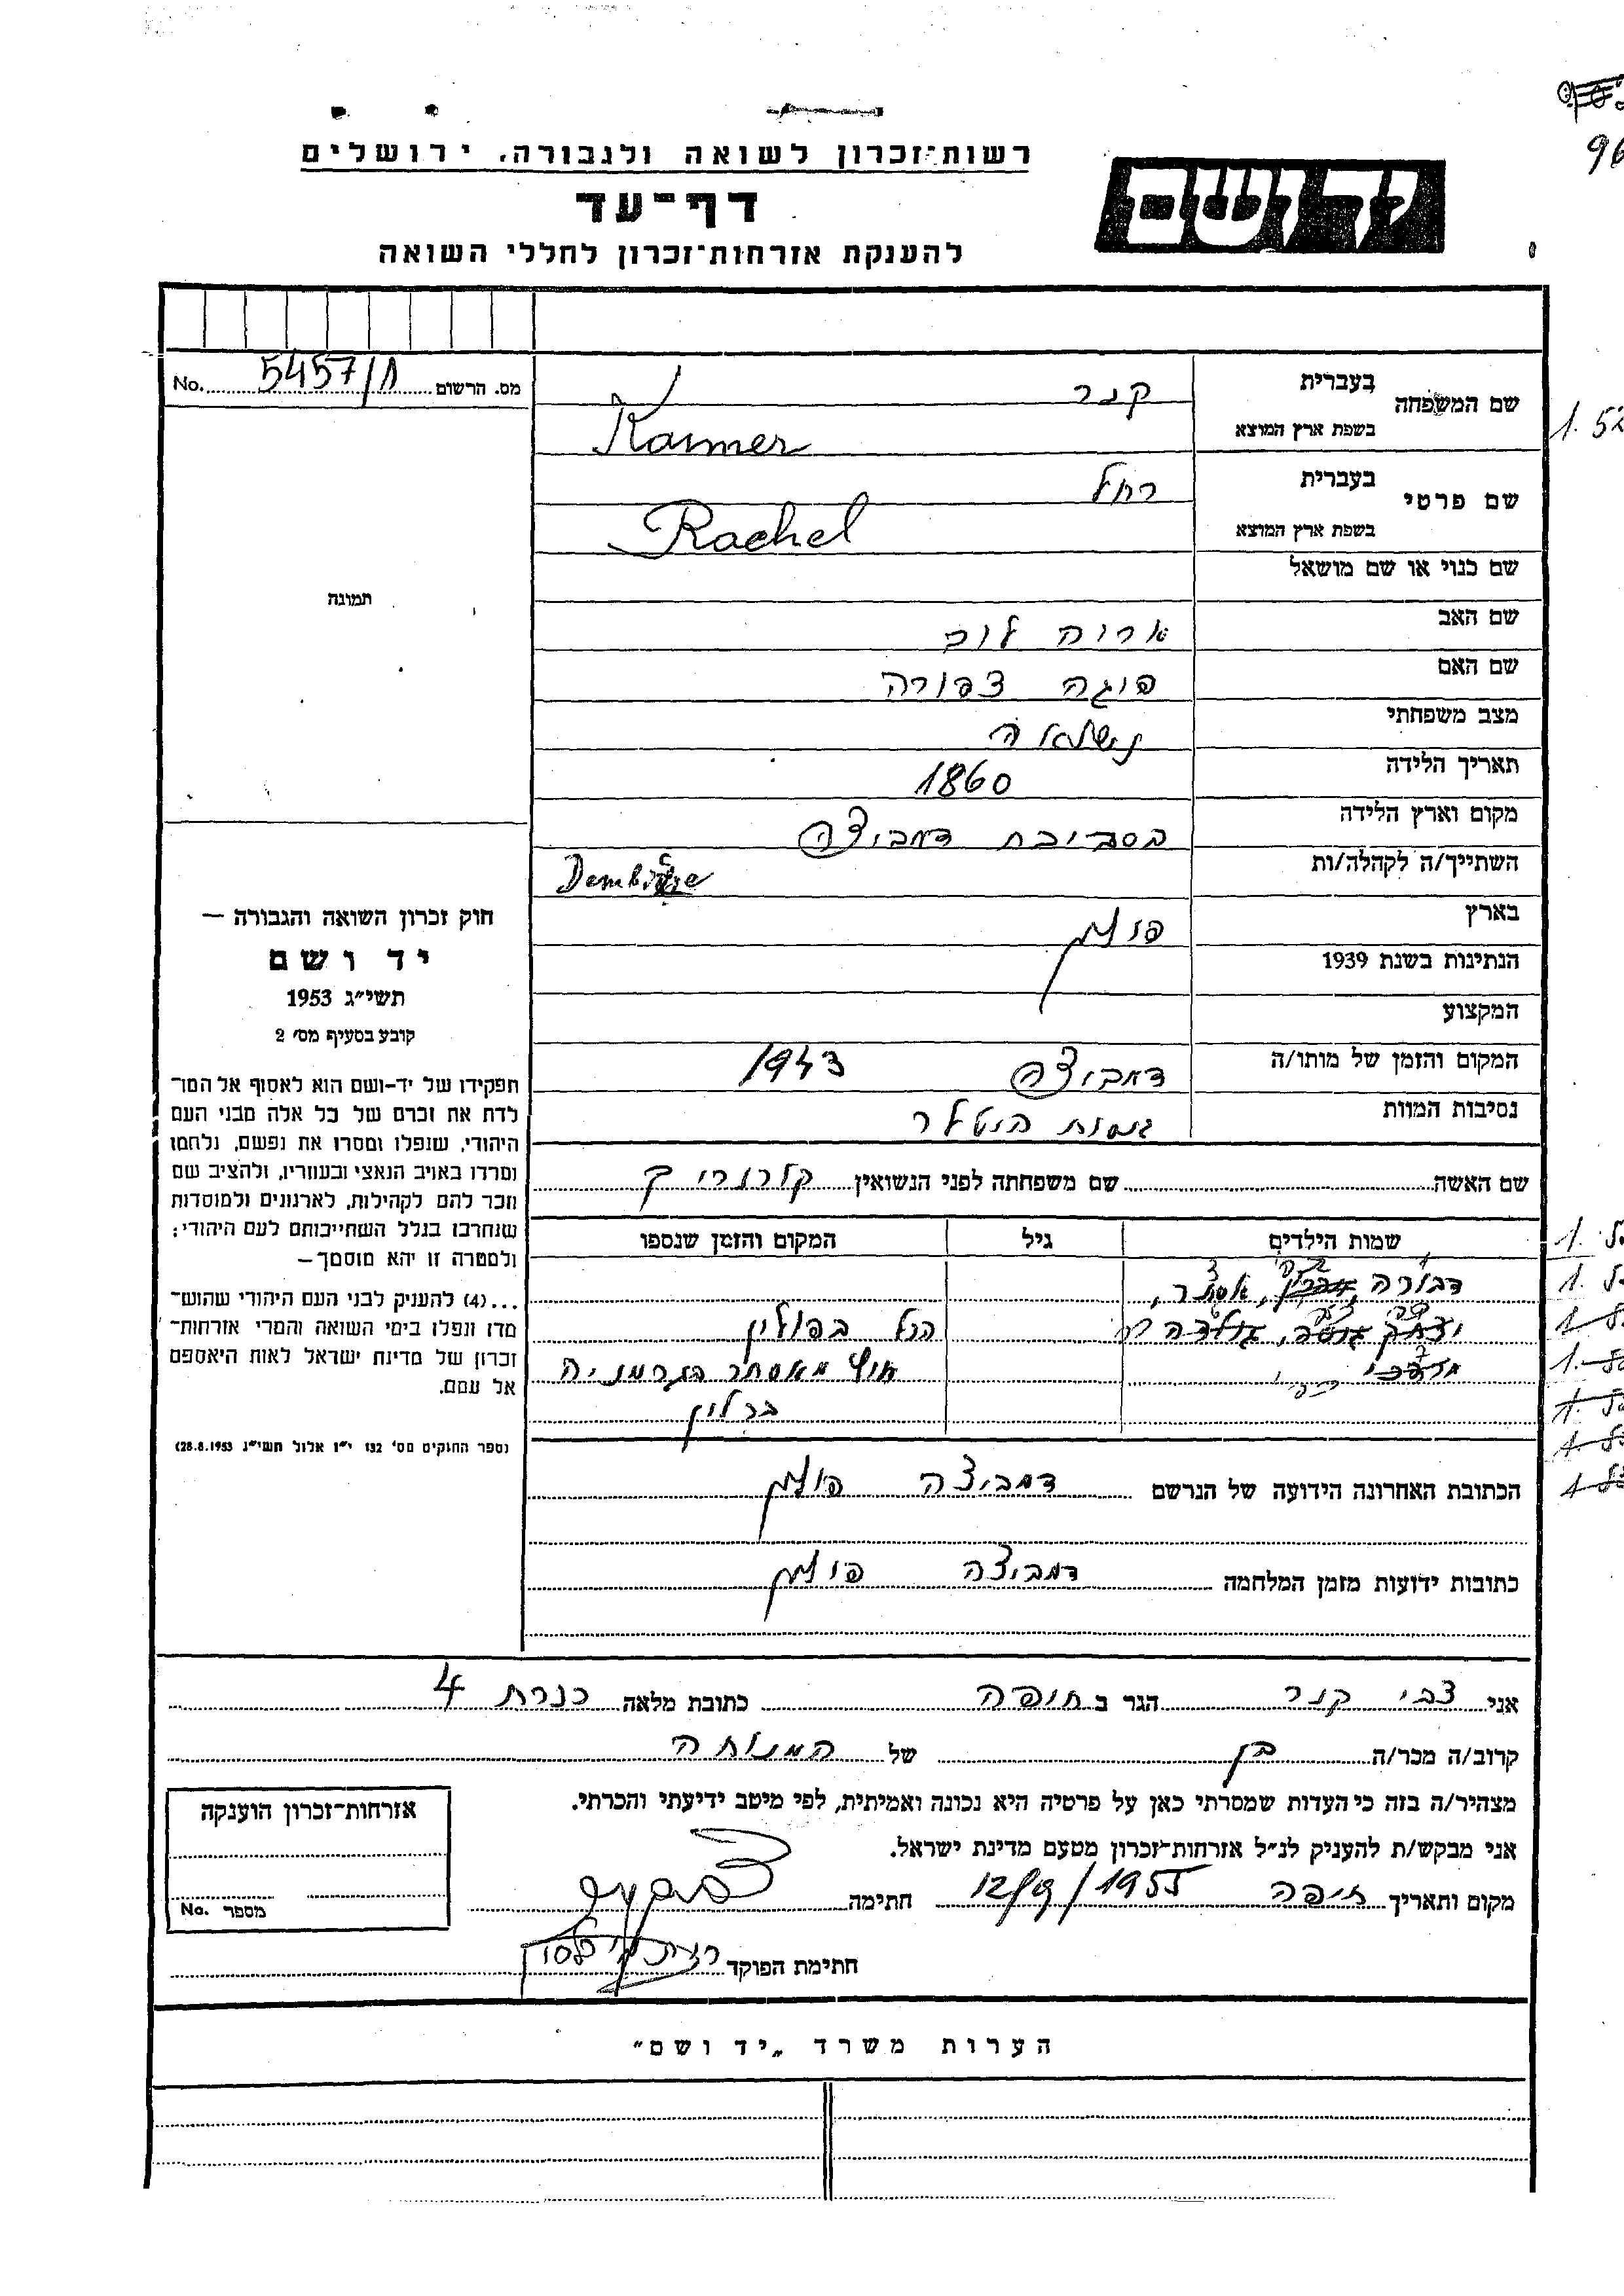 96
רשות־זכרון לשואה ולגבורה, ירושלים
ידושם
דף־עד
להענקת אזרחות־זכרון לחללי השואה
No. 5457/8 מס. הרשום
שם המשפחה בעברית קנר
בשפת ארץ המוצא Kanner
1. 52
שם פרטי בעברית רחל
בשפת ארץ המוצא Rachel
שם כנוי או שם מושאל
תמונה
שם האב אריה לוב
שם האם פיגה צפורה
מצב משפחתי נישואה
תאריך הלידה 1860
מקום וארץ הלידה בסביבת דמביצה
השתייך/ה לקהלה/ות
בארץ פולין
הנתינות בשנת 1939
המקצוע
המקום והזמן של מותו/ה דמביצה 1943
נסיבות המוות היטלר
שם האשה שם משפחתה לפני הנשואין
שמות הילדים גיל המקום והזמן שנספו
דבורה, אסתר,
יצחק הנל בפולין
מרדכי בגרמניה
ברלין
הכתובת האחרונה הידועה של הנרשם דמביצה פולין
כתובות ידועות מזמן המלחמה דמביצה פולין
חוק זכרון השואה והגבורה —
יד ושם
תשי״ג 1953
קובע בסעיף מס׳ 2
תפקידו של יד-ושם הוא לאסוף אל המו־
לדת את זכרם של כל אלה מבני העם
היהודי, שנפלו ומסרו את נפשם, נלחמו
ומרדו באויב הנאצי ובעוזריו, ולהציב שם
וזכר להם לקהילות, לארגונים ולמוסדות
שנחרבו בגלל השתייכותם לעם היהודי;
ולמטרה זו יהא מוסמך —
...(4) להעניק לבני העם היהודי שהוש־
מדו ונפלו בימי השואה והמרי אזרחות־
זכרון של מדינת ישראל לאות היאספם
אל עמם.
(ספר החוקים מס׳ 132 י״ז אלול תשי״ג 28.8.1953)
אני צבי קנר הגר ב חיפה כתובת מלאה כנרת 4
קרוב/ה מכר/ה בן של המנוחה
מצהיר/ה בזה כי העדות שמסרתי כאן על פרטיה היא נכונה ואמיתית, לפי מיטב ידיעתי והכרתי.
אני מבקש/ת להעניק לנ״ל אזרחות־זכרון מטעם מדינת ישראל.
מקום ותאריך חיפה 1955 חתימה
חתימת הפוקד
אזרחות־זכרון הוענקה
מספר No.
הערות משרד „יד ושם״